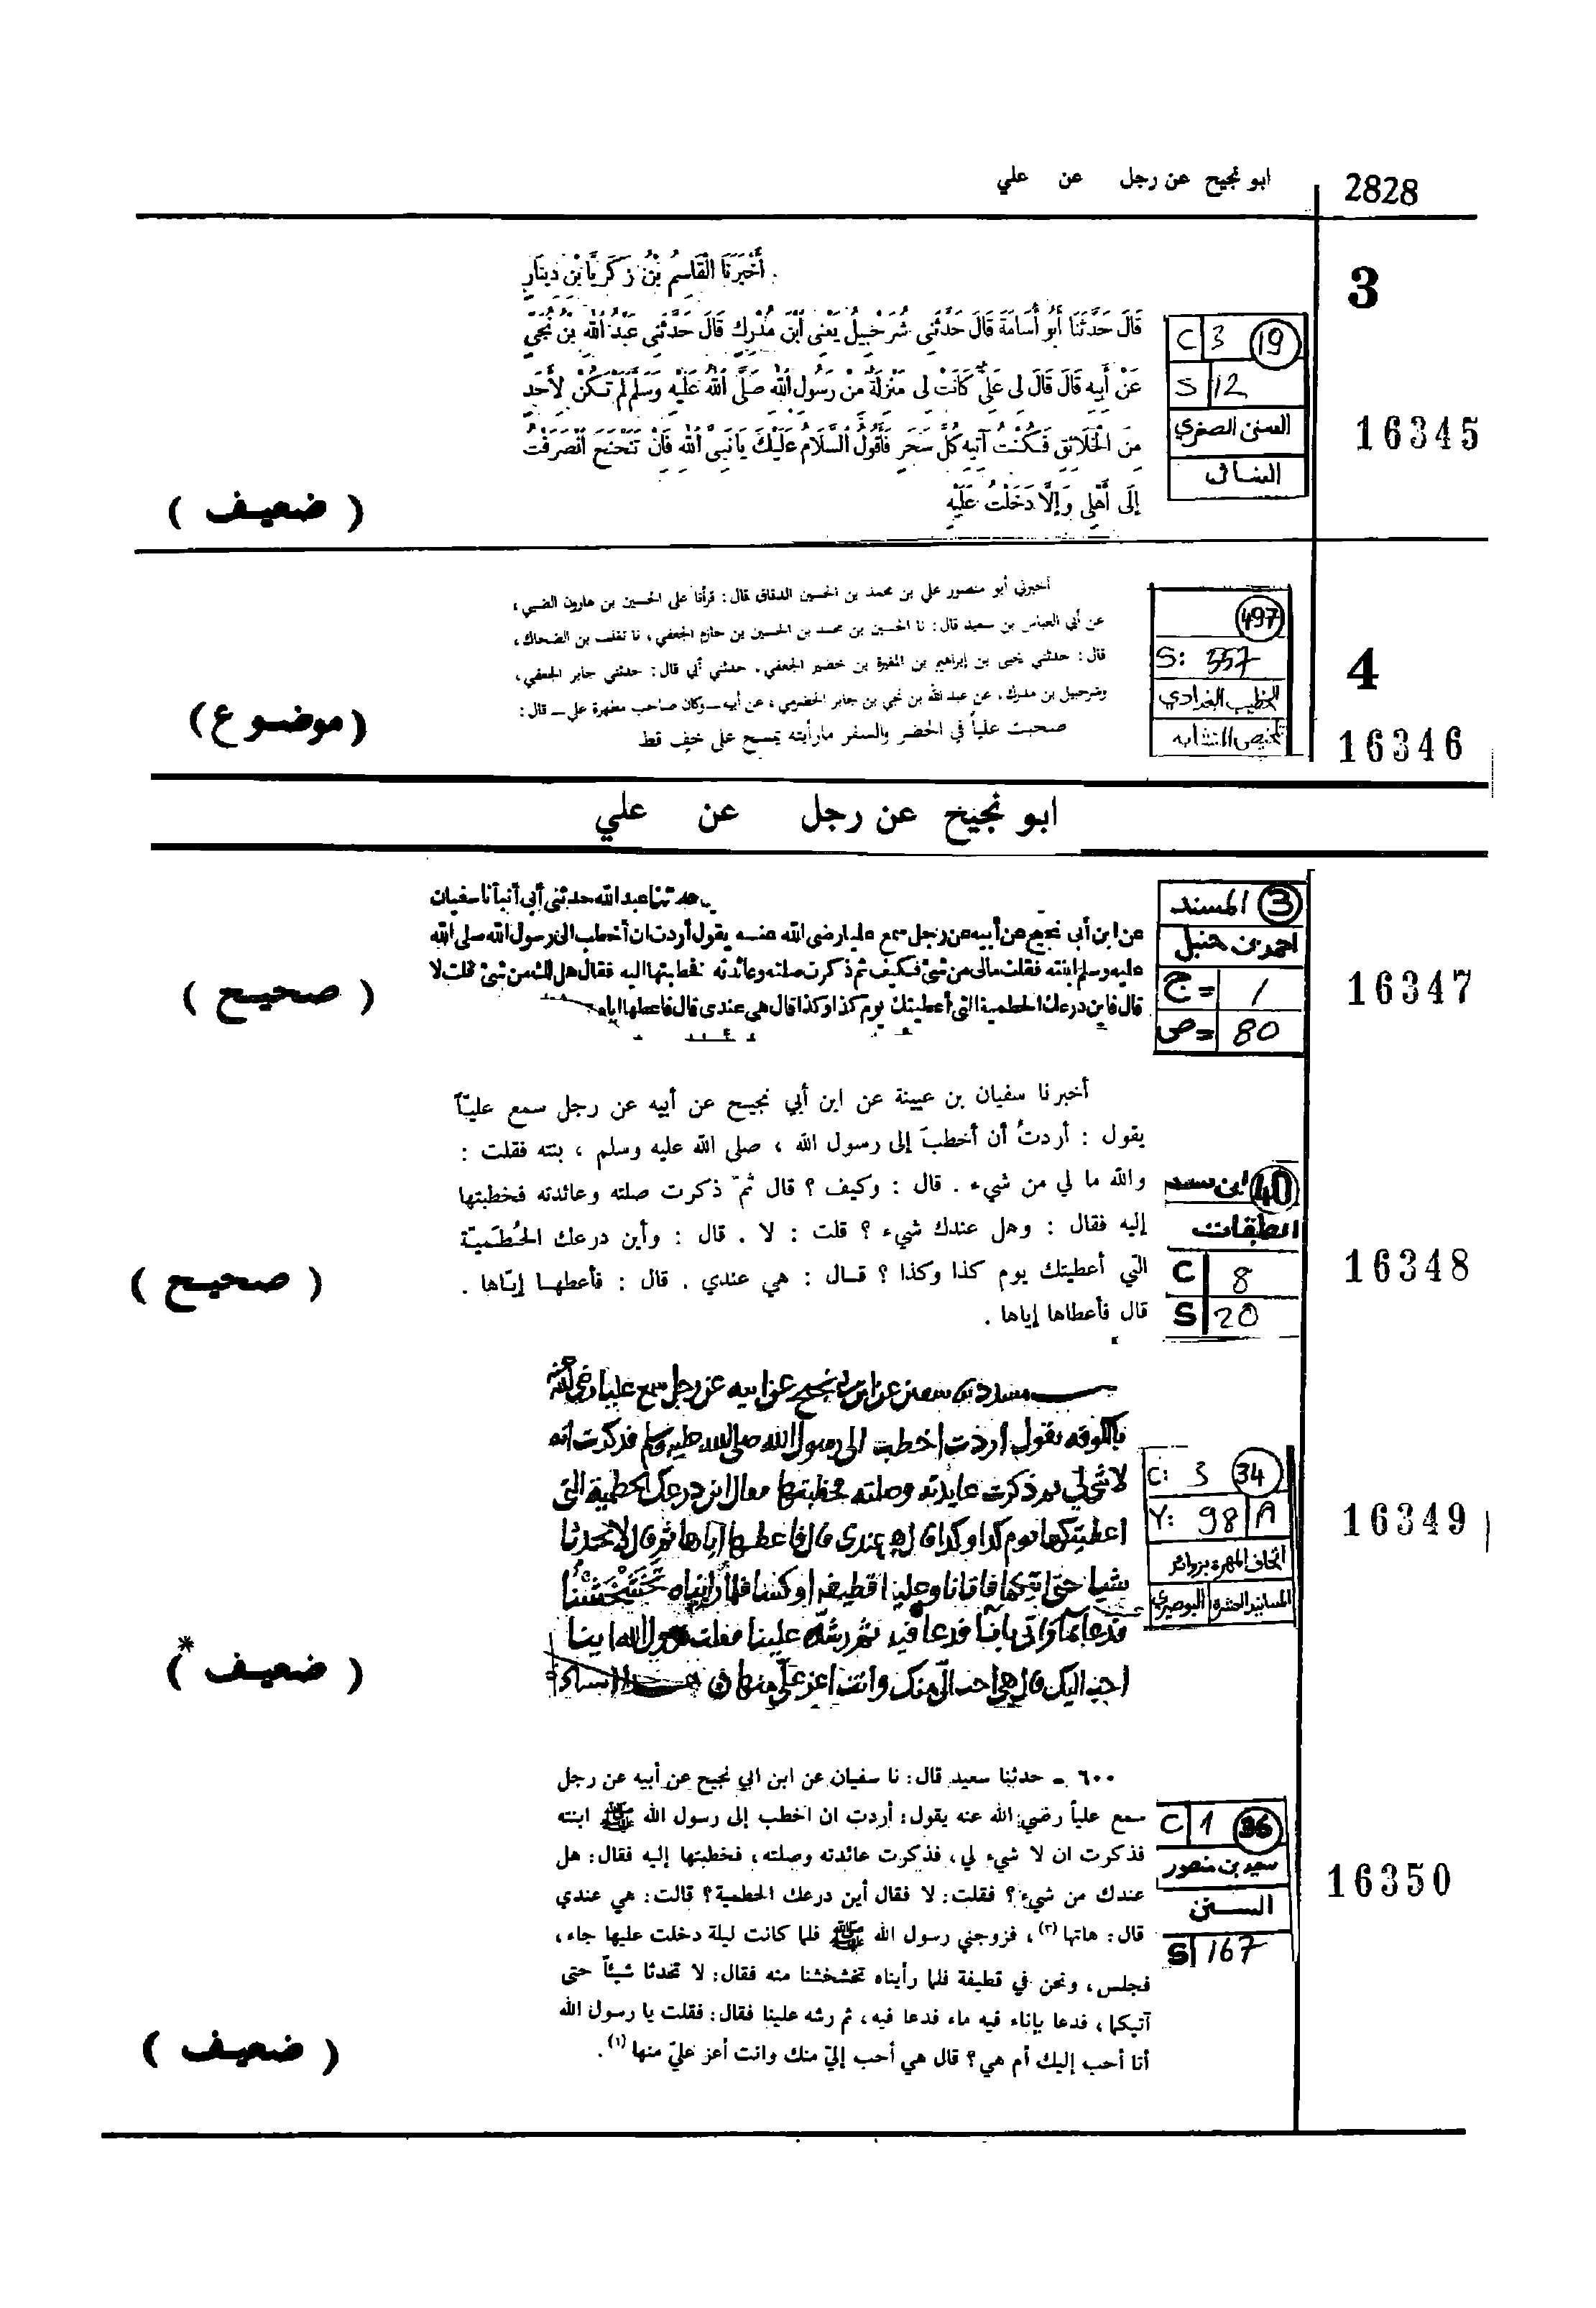 2828
ابو نجيح عن رجل عن علي
3
أَخْبَرَنَا الْقَاسِمُ بْنُ زَكَرِيَّا بْنِ دِينَارٍ
قَالَ حَدَّثَنَا أَبُو أُسَامَةَ قَالَ حَدَّثَنِي شُرَحْبِيلُ يَعْنِي ابْنَ مُدْرِكٍ قَالَ حَدَّثَنِي عَبْدُ اللهِ بْنُ نُجَيٍّ
عَنْ أَبِيهِ قَالَ قَالَ لِي عَلِيٌّ كَانَتْ لِي مَنْزِلَةٌ مِنْ رَسُولِ اللهِ صَلَّى اللهُ عَلَيْهِ وَسَلَّمَ لَمْ تَكُنْ لِأَحَدٍ
مِنَ الْخَلَائِقِ فَكُنْتُ آتِيهِ كُلَّ سَحَرٍ فَأَقُولُ السَّلَامُ عَلَيْكَ يَا نَبِيَّ اللهِ فَإِنْ تَنَحْنَحَ انْصَرَفْتُ
إِلَى أَهْلِي وَإِلَّا دَخَلْتُ عَلَيْهِ
C 3 19
S 12
السنن الصغرى
النسائى
16345
( ضعيف )
أخبرني أبو منصور علي بن محمد بن الحسين الدقاق قال: قرأنا على الحسين بن هارون الضبي،
عن أبي العباس بن سعيد قال: نا الحسين بن محمد بن الحسين بن حازم الجعفي، نا تغلب بن الضحاك،
قال: حدثني يحيى بن إبراهيم بن المغيرة بن خضير الجعفي، حدثني أبي قال: حدثني جابر الجعفي،
وشرحبيل بن مدرك، عن عبد الله بن نجي بن جابر الحضرمي، عن أبيه ــ وكان صاحب مطهرة علي ــ قال:
صحبت علياً في الحضر والسفر مارأيته يمسح على خف قط
497
S: 557
الخطيب البغدادي
تلخيص المتشابه
4
16346
(موضوع)
ابو نجيح عن رجل عن علي
حدثنا عبد الله حدثنى أبى أنبأنا سفيان
عن ابن أبى نجيح عن أبيه عن رجل سمع عليا رضى الله عنه يقول أردت ان أخطب الى رسول الله صلى الله
عليه وسلم ابنته فقلت مالى من شئ فكيف ثم ذكرت صلته وعائدته فخطبتها اليه فقال هل لك من شئ قلت لا
قال فاين درعك الحطمية التى أعطيتك يوم كذا وكذا قال هى عندى قال فاعطها اياه
3 المسند
احمد بن حنبل
ج= 1
ص= 80
16347
( صحيح )
أخبرنا سفيان بن عيينة عن ابن أبي نجيح عن أبيه عن رجل سمع عليّاً
يقول : أردتُ أن أخطبَ إلى رسول الله ، صلى الله عليه وسلم ، بنته فقلت :
والله ما لي من شيء . قال : وكيف ؟ قال ثمّ ذكرت صلته وعائدته فخطبتها
إليه فقال : وهل عندك شيء ؟ قلت : لا . قال : وأين درعك الحُطَميّة
التي أعطيتك يوم كذا وكذا ؟ قال : هي عندي . قال : فأعطها إيّاها .
قال فأعطاها إياها .
40 ابن سعد
الطبقات
C 8
S 20
16348
( صحيح )
عن ابيه عن رجل سمع عليا رضي الله عنه
بالكوفة يقول اردت اخطب الى رسول الله صلى الله عليه وسلم فذكرت انه
لا شي لي ثم ذكرت عايدته وصلته فخطبتها فقال اين درعك الحطمية التي
اعطيتكها يوم كذا وكذا قال هي عندي قال فاعطها اياها ثم قال لا تحدثا
شيا حتى اتيكما فاتانا وعلينا قطيفة او كسا فلما رايناه تخشخشنا
فدعا فيه ثم رشه علينا فقلت يا رسول الله اينا
احب اليك قال هي احب الي منك وانت اعز علي منها
C: 3 34
Y: 98 A
اتحاف المهرة بزوائد
المسانيد العشرة البوصيري
16349
( ضعيف * )
٦٠٠ ـ حدثنا سعيد قال: نا سفيان عن ابن ابي نجيح عن أبيه عن رجل
سمع علياً رضي الله عنه يقول: أردت ان اخطب إلى رسول الله ﷺ ابنته
فذكرت ان لا شيء لي، فذكرت عائدته وصلته، فخطبتها إليه فقال: هل
عندك من شيء؟ فقلت: لا فقال أين درعك الحطمية؟ قالت: هي عندي
قال: هاتها (٣)، فزوجني رسول الله ﷺ فلما كانت ليلة دخلت عليها جاء،
فجلس، ونحن في قطيفة فلما رأيناه تخشخشنا منه فقال: لا تحدثا شيئاً حتى
آتيكما، فدعا بإناء فيه ماء فدعا فيه، ثم رشه علينا فقال: فقلت يا رسول الله
أنا أحب إليك أم هي؟ قال هي أحب إليّ منك وانت أعز عليّ منها (١).
C 1 36
سعيد بن منصور
السنن
S 167
16350
( ضعيف )